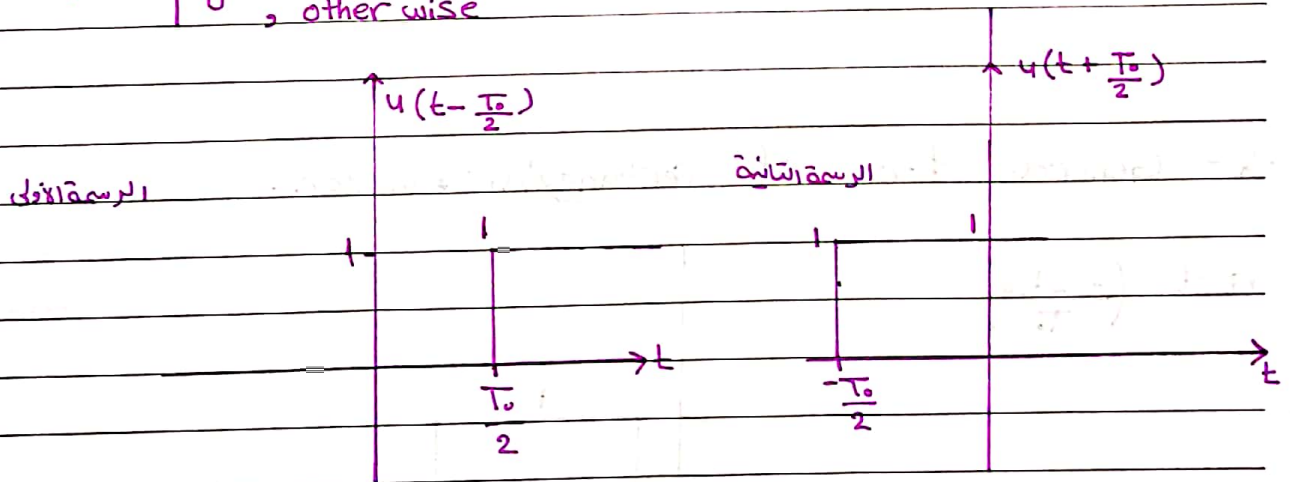 0 , other wise
u(t - T₀/2)
u(t + T₀/2)
الرسمة الأولى
الرسمة الثانية
1
1
1
1
t
t
T₀/2
-T₀/2